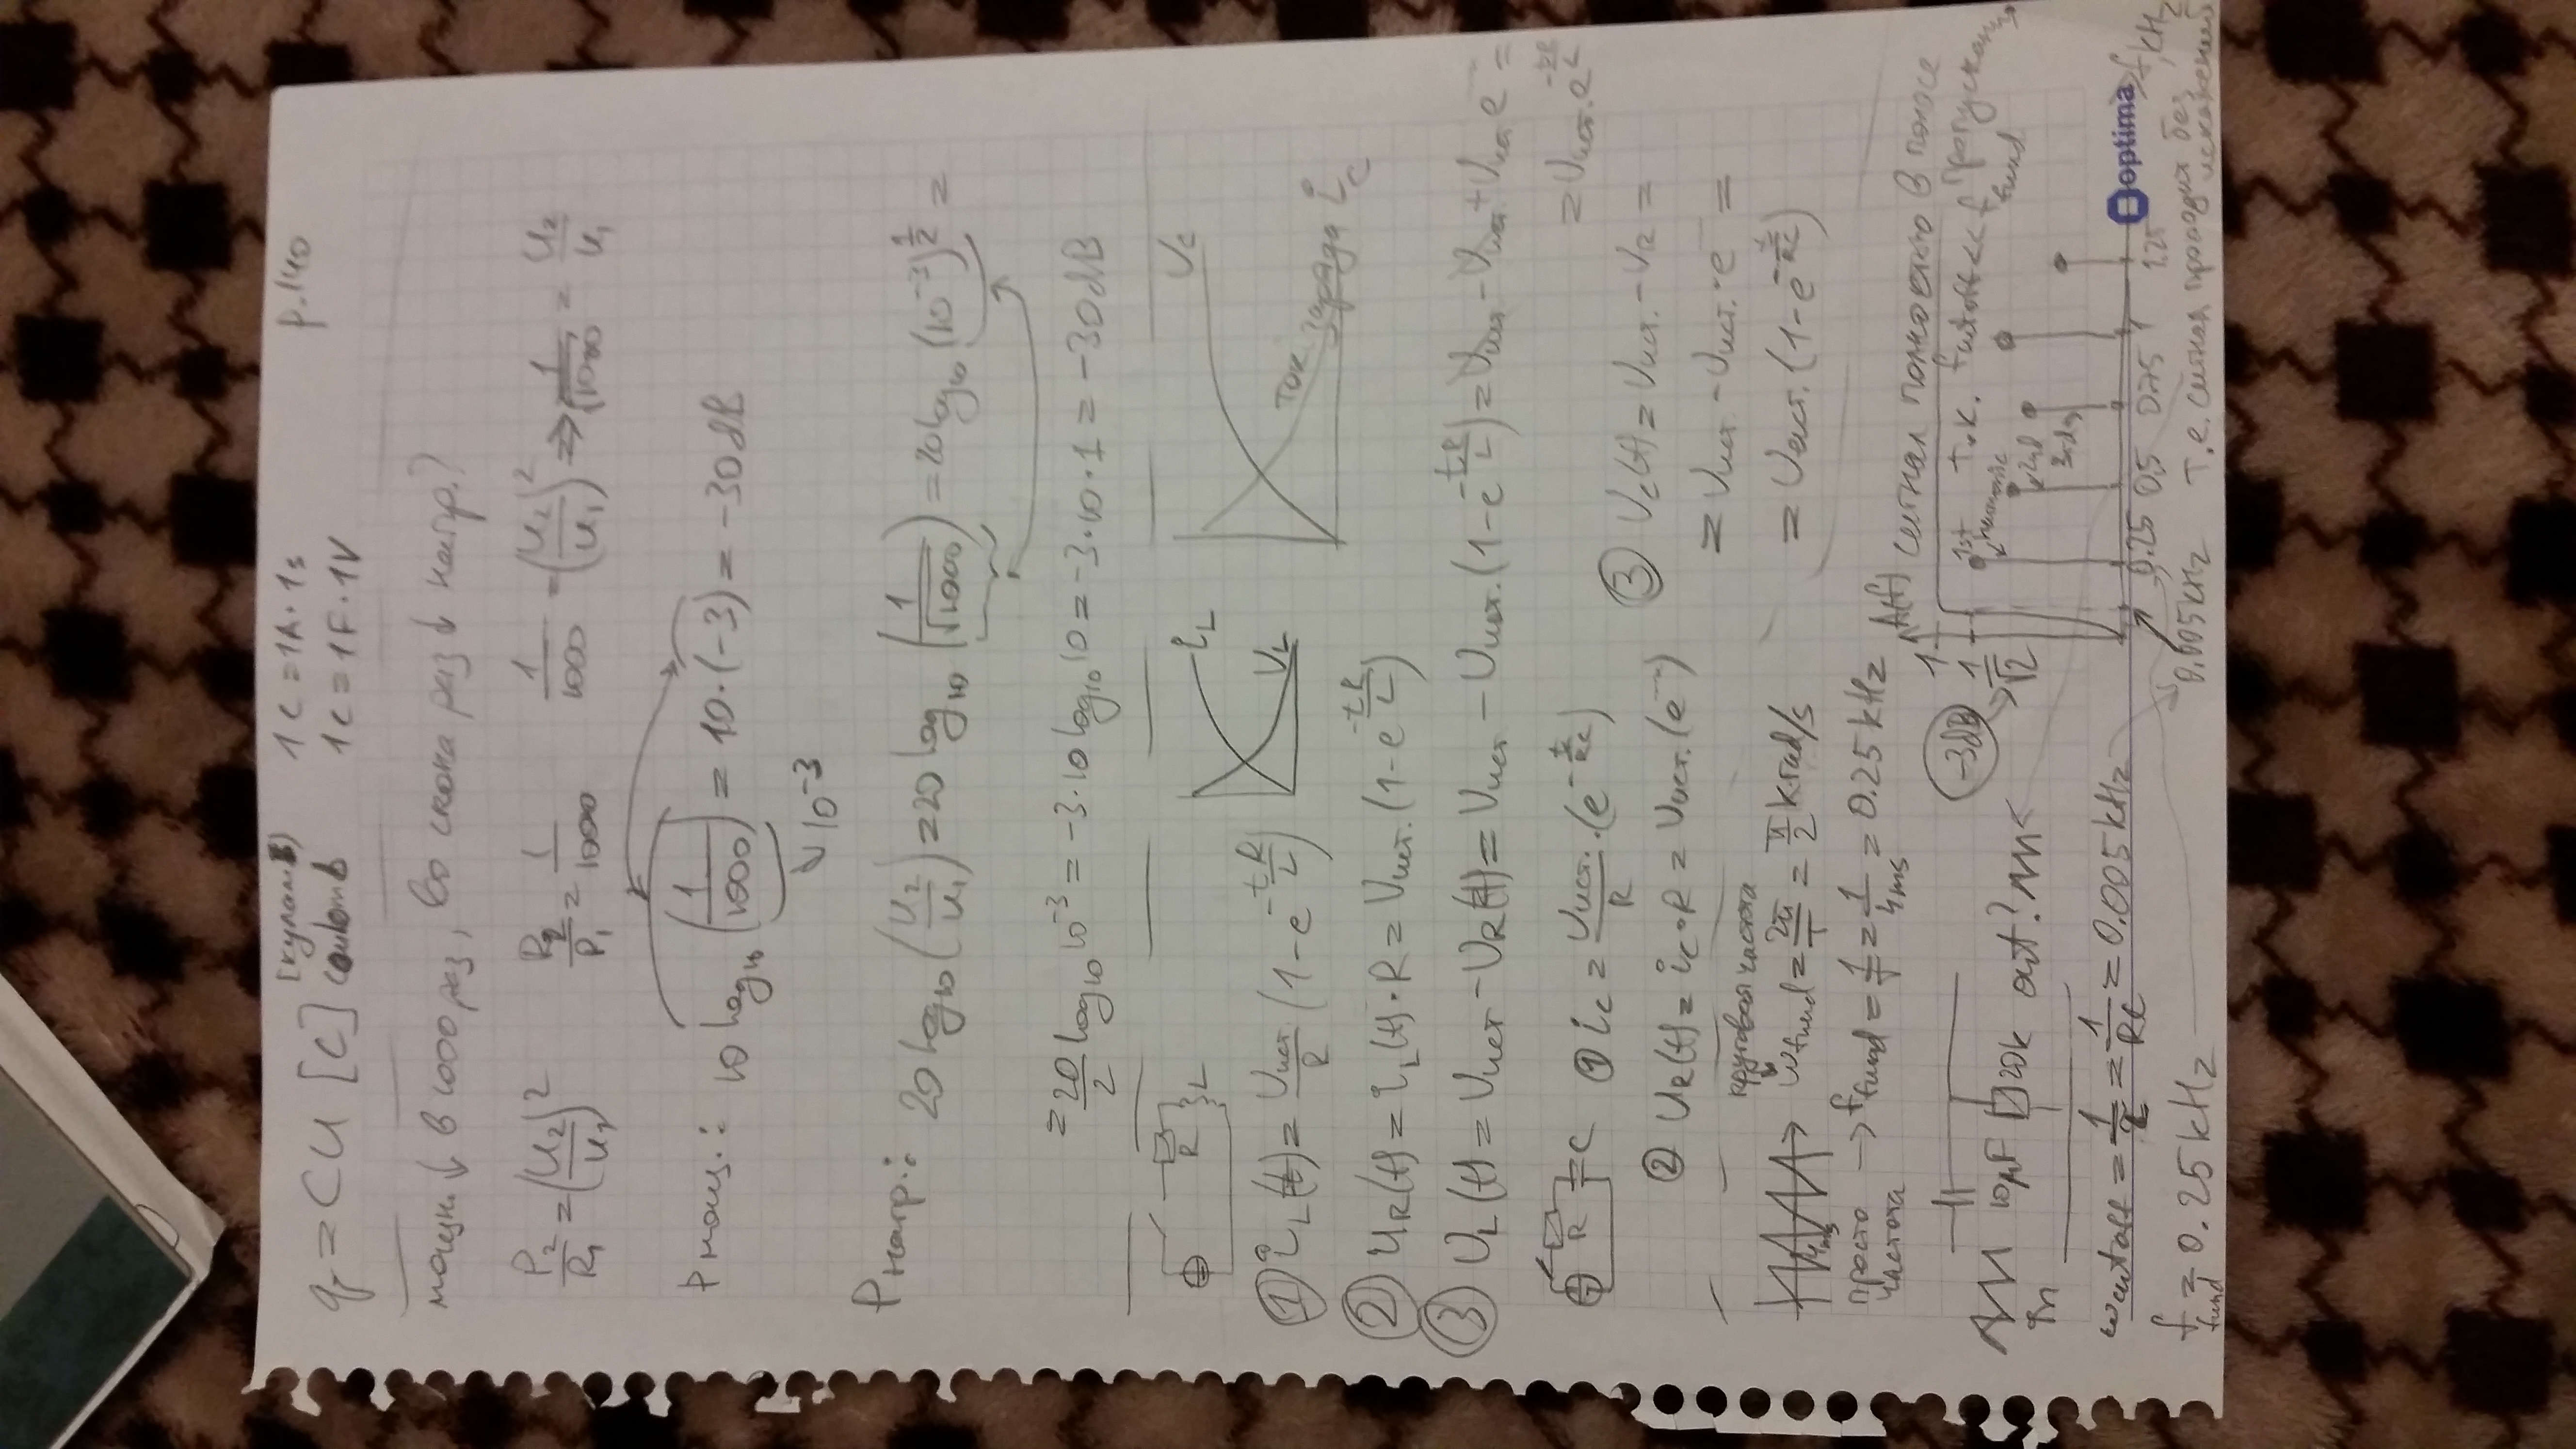 q = CU [C] (куломб) coulomb 1C = 1A·1s p.140
1C = 1F·1V
мощн. ↓ в 1000 раз, во скока раз ↓ напр.?
P₂/R₁ = (U₂/U₁)² R₂/P₁ = 1/1000 1/1000 = (U₂/U₁)² ⇒ 1/√1000 = U₂/U₁
P мощ.: 10 log₁₀ (1/1000) = 10·(-3) = -30 dB
↓ 10⁻³
P напр.: 20 log₁₀ (U₂/U₁) = 20 log₁₀ (1/√1000) = 20 log₁₀ (10⁻³)^½ =
= 20/2 log₁₀ 10⁻³ = -3·10 log₁₀ 10 = -3·10·1 = -30 dB
R L
i_L U_L
U_C ток заряда i_C
① i_L(t) = U_ист./R (1 - e^(-tR/L))
② U_R(t) = i_L(t)·R = U_ист. (1 - e^(-tR/L))
③ U_L(t) = U_ист - U_R(t) = U_ист - U_ист. (1 - e^(-tR/L)) = U_ист - U_ист + U_ист e⁻ =
= U_ист. e^(-tR/L)
R C
① i_C = U_ист./R · (e^(-t/RC))
② U_R(t) = i_C·R = U_ист. (e⁻)
③ U_C(t) = U_ист. - U_R =
= U_ист - U_ист.·e⁻ =
= U_ист. (1 - e^(-t/RC))
круговая частота
4ms ω_fund = 2π/T = π/2 k rad/s
просто частота → f_fund = 1/T = 1/4ms = 0.25 kHz
in 10μF 20k out?
ω_cutoff = 1/τ = 1/RC = 0.005 kHz
f_fund = 0.25 kHz
A(f) сигнал полностью в полосе пропускания
т.к. f_cutoff << f_fund
1
-3dB → 1/√2
1st harmonic
2nd
3rd
0.25 0.5 0.75 1 1.25 f, kHz
optima
0.005 kHz
т.е. сигнал проходит без искажений